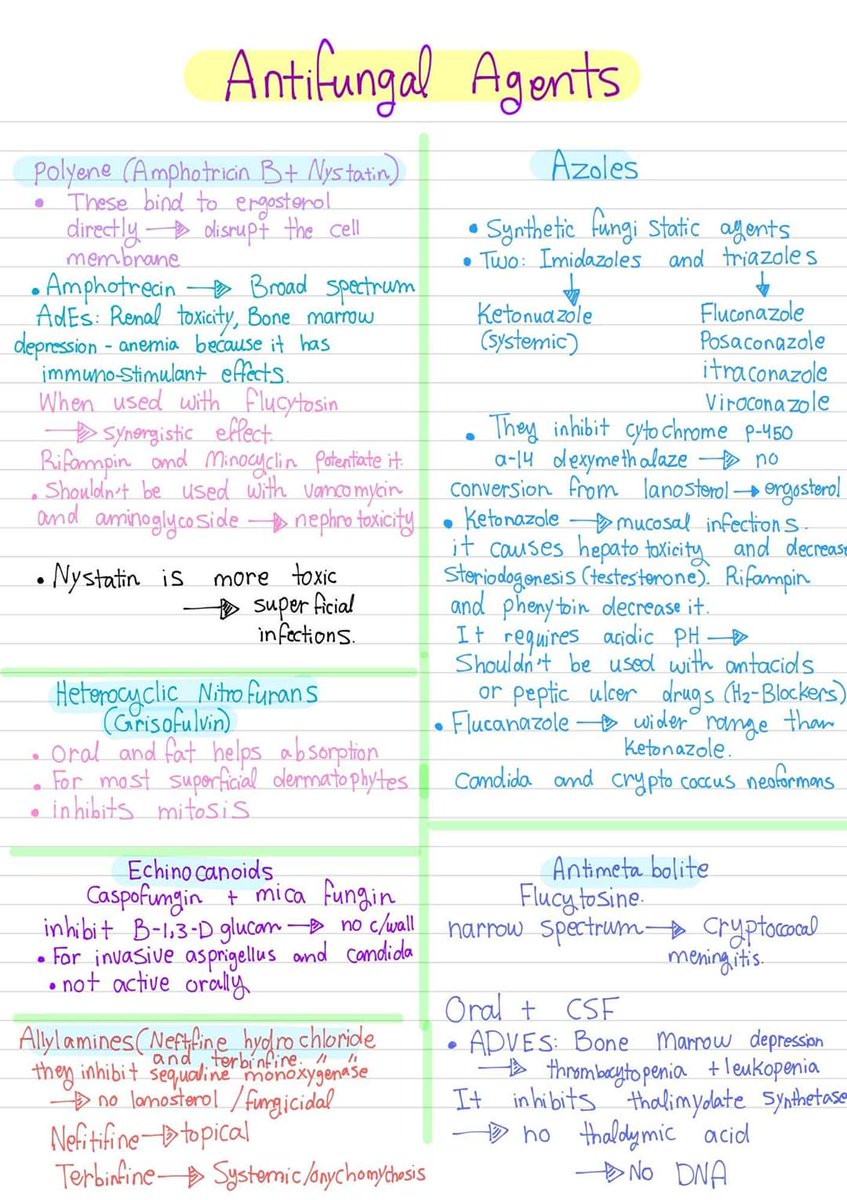 Antifungal Agents
Polyene (Amphotricin B+ Nystatin)
• These bind to ergosterol
directly → disrupt the cell
membrane
• Amphotrecin → Broad spectrum
AdEs: Renal toxicity, Bone marrow
depression - anemia because it has
immuno-stimulant effects.
When used with flucytosin
→ synergistic effect.
Rifampin and Minocyclin potentiate it.
• Shouldn't be used with vancomycin
and aminoglycoside → nephrotoxicity
• Nystatin is more toxic
→ superficial
infections.
Heterocyclic Nitrofurans
(Grisofulvin)
• Oral and fat helps absorption
• For most superficial dermatophytes
• inhibits mitosis
Echinocanoids
Caspofungin + mica fungin
inhibit B-1,3-D glucan → no c/wall
• For invasive asprigellus and candida
• not active orally
Allylamines (Neftifine hydrochloride
and terbinfine. " "
they inhibit sequaline monoxygenase
→ no lanosterol / fungicidal
Nefitifine → topical
Terbinfine → Systemic/onychomychosis
Azoles
• Synthetic fungi static agents
• Two: Imidazoles and triazoles
↓ ↓
Ketonuazole Fluconazole
(systemic) Posaconazole
itraconazole
Viroconazole
• They inhibit cytochrome P-450
a-14 dexymethalaze → no
conversion from lanosterol → ergosterol
• Ketonazole → mucosal infections.
it causes hepato toxicity and decrease
Steriodogenesis (testesterone). Rifampin
and phenytoin decrease it.
It requires acidic PH →
Shouldn't be used with antacids
or peptic ulcer drugs (H2-Blockers)
• Flucanazole → wider range than
ketonazole.
Candida and crypto coccus neoformans
Antimeta bolite
Flucytosine.
narrow spectrum → Cryptoccocal
meningitis.
Oral + CSF
• ADVES: Bone Marrow depression
→ thrombocytopenia + leukopenia
It inhibits thalimydate synthetase
→ no thaldymic acid
→ No DNA